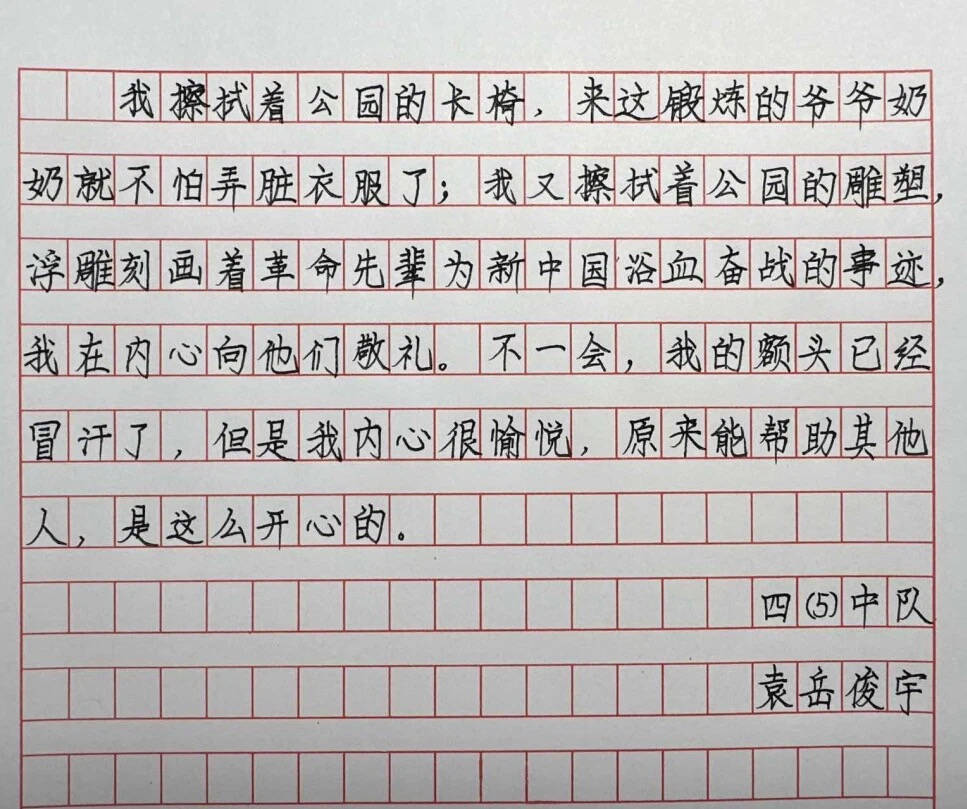 我擦拭着公园的长椅，来这锻炼的爷爷奶
奶就不怕弄脏衣服了；我又擦拭着公园的雕塑，
浮雕刻画着革命先辈为新中国浴血奋战的事迹，
我在内心向他们敬礼。不一会，我的额头已经
冒汗了，但是我内心很愉悦，原来能帮助其他
人，是这么开心的。
四(5)中队
袁岳俊宇